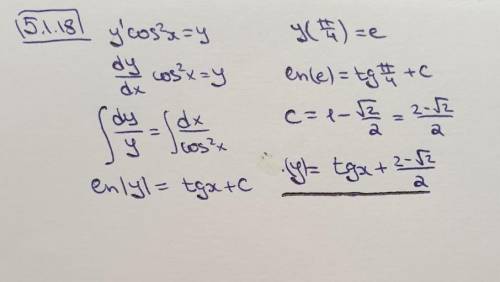 5.1.18
y'cos²x=y
dy/dx cos²x=y
∫dy/y = ∫dx/cos²x
en|y| = tgx+C
y(π/4)=e
en(e)=tg π/4 + C
C = 1 - √2/2 = 2-√2/2
|y|= tgx + 2-√2/2